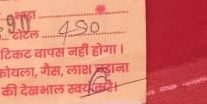 भाड़ा
90
टोटल 490
टिकट वापस नहीं होगा।
कोयला, गैस, लाश चढ़ाना
की देखभाल स्वयं करें।